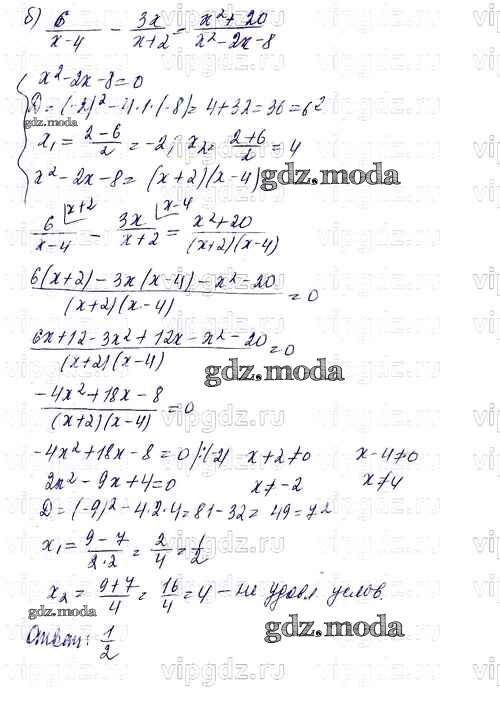 б) 6/(x-4) - 3x/(x+2) = (x²+20)/(x²-2x-8)
x²-2x-8=0
D=(-2)²-4·1·(-8)=4+32=36=6²
x₁=(2-6)/2=-2, x₂=(2+6)/2=4
x²-2x-8=(x+2)(x-4)
gdz.moda
6/(x-4) |x+2 - 3x/(x+2) |x-4 = (x²+20)/((x+2)(x-4))
(6(x+2)-3x(x-4)-x²-20)/((x+2)(x-4)) =0
(6x+12-3x²+12x-x²-20)/((x+2)(x-4)) =0
gdz.moda
(-4x²+18x-8)/((x+2)(x-4)) =0
-4x²+18x-8=0 |:(-2) x+2≠0 x-4≠0
2x²-9x+4=0 x≠-2 x≠4
D=(-9)²-4·2·4=81-32=49=7²
x₁=(9-7)/(2·2)=2/4=1/2
x₂=(9+7)/4=16/4=4 - не удовл. услов.
gdz.moda
Ответ: 1/2
gdz.moda